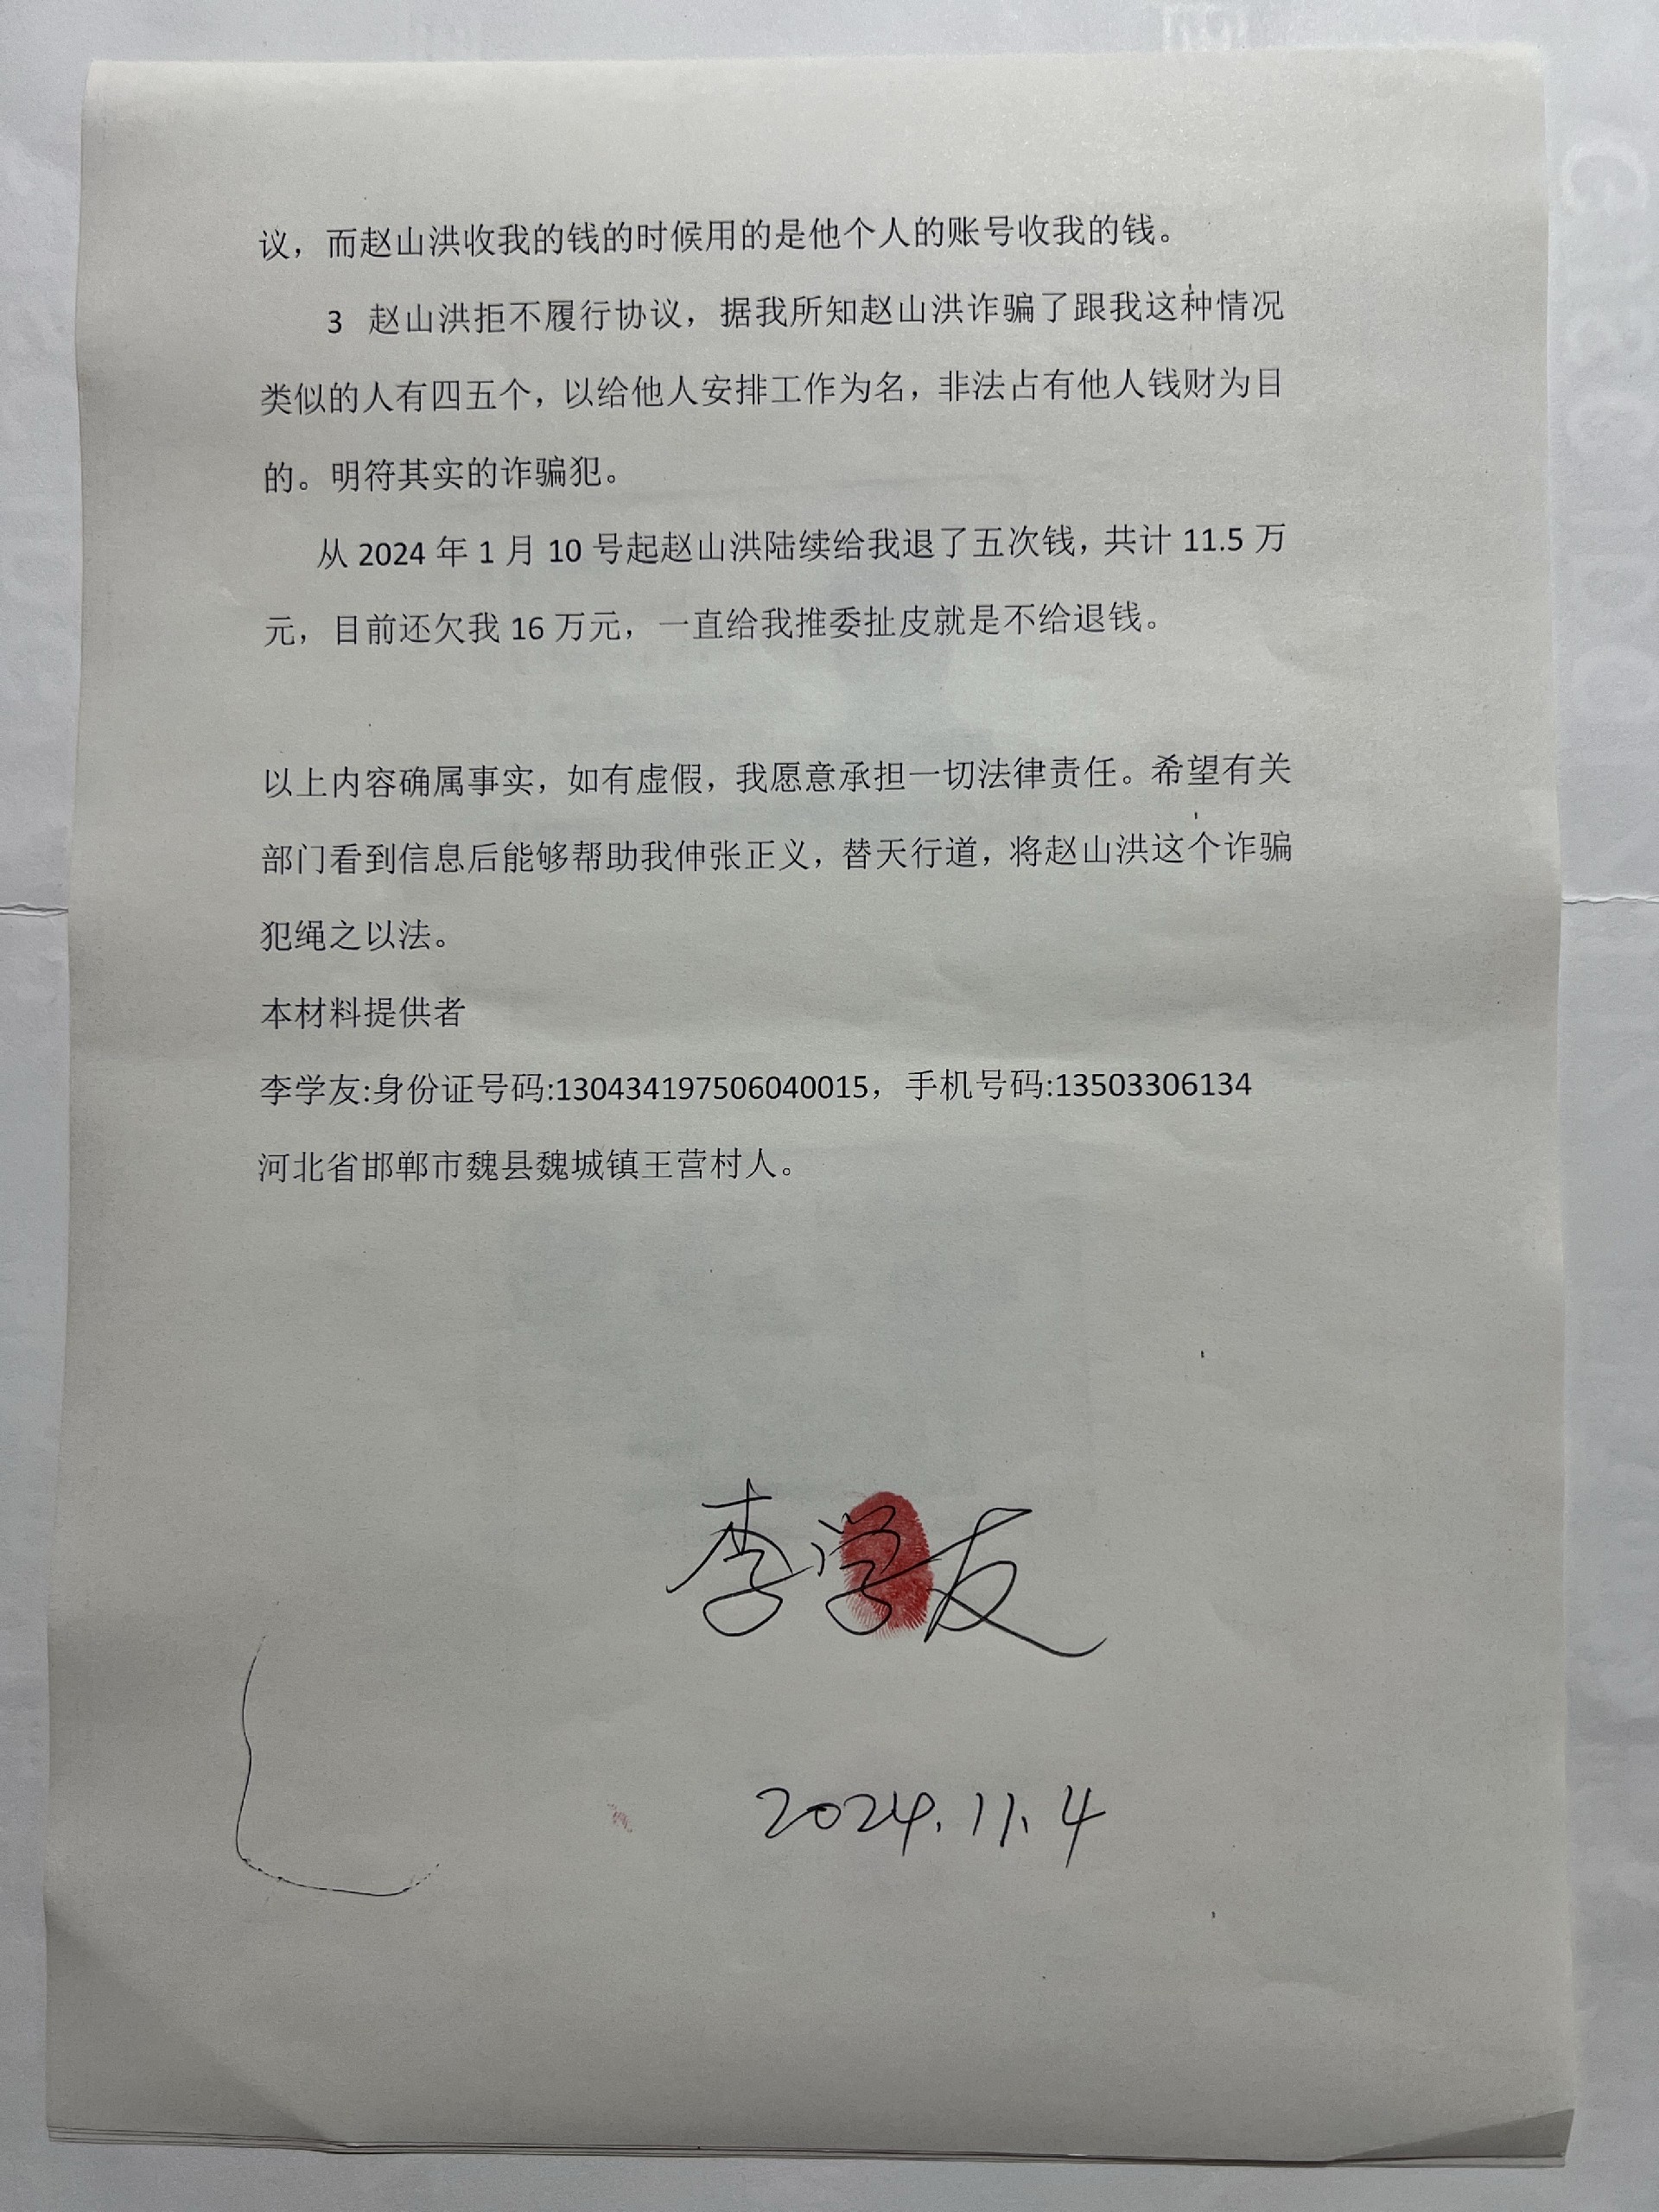 议，而赵山洪收我的钱的时候用的是他个人的账号收我的钱。
3 赵山洪拒不履行协议，据我所知赵山洪诈骗了跟我这种情况
类似的人有四五个，以给他人安排工作为名，非法占有他人钱财为目
的。明符其实的诈骗犯。
从 2024 年 1 月 10 号起赵山洪陆续给我退了五次钱，共计 11.5 万
元，目前还欠我 16 万元，一直给我推委扯皮就是不给退钱。
以上内容确属事实，如有虚假，我愿意承担一切法律责任。希望有关
部门看到信息后能够帮助我伸张正义，替天行道，将赵山洪这个诈骗
犯绳之以法。
本材料提供者
李学友:身份证号码:130434197506040015，手机号码:13503306134
河北省邯郸市魏县魏城镇王营村人。
李学友
2024.11.4